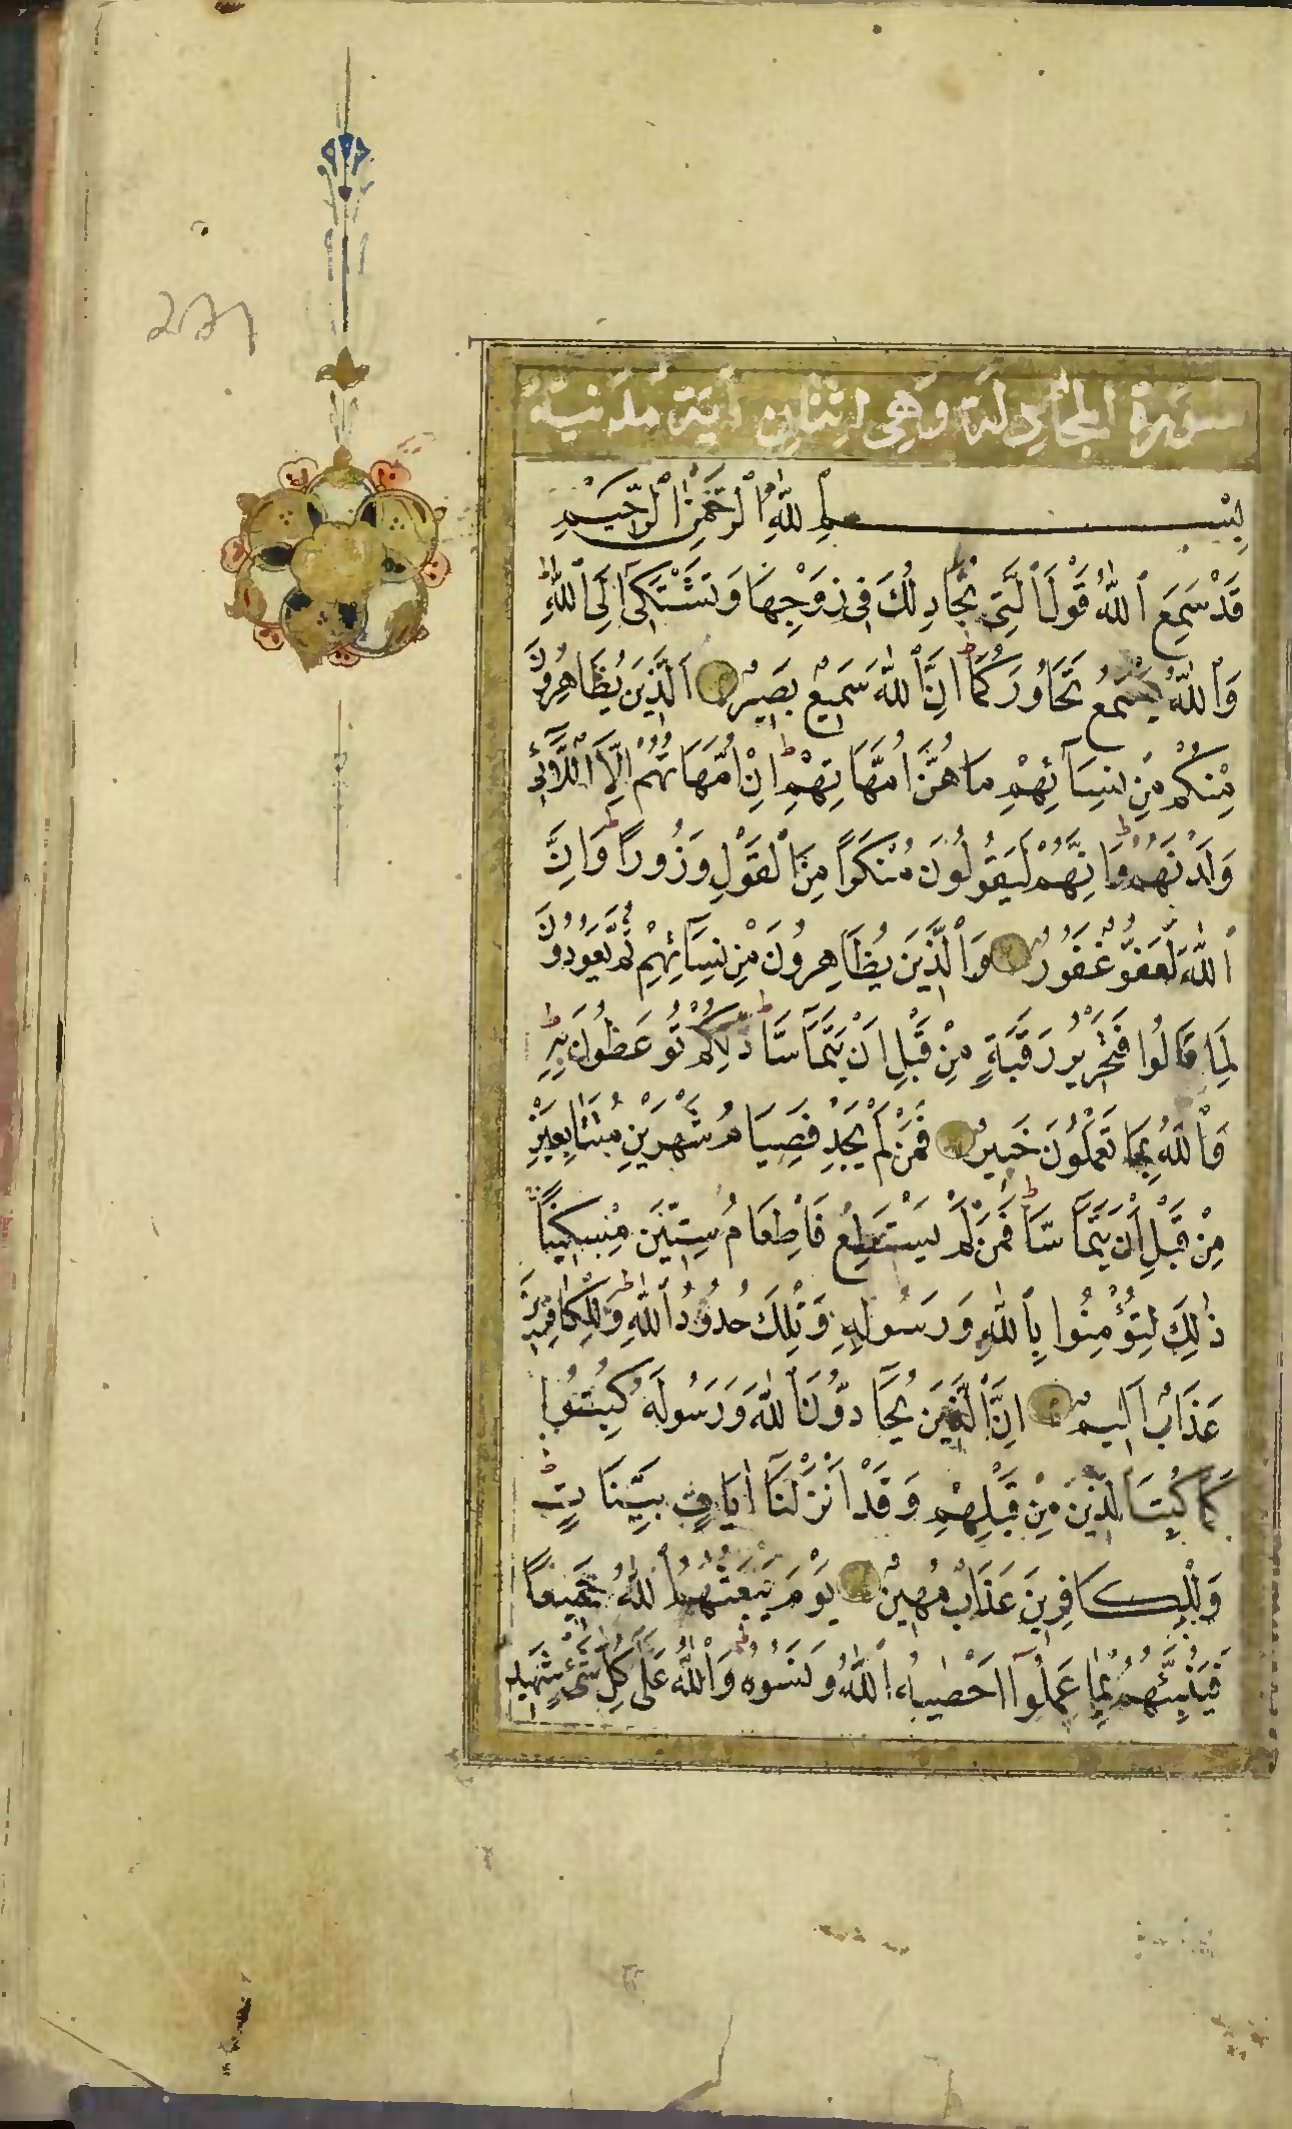 سورة المجادلة وهي اثنان آية مدنية
بِسْمِ ٱللّٰهِ ٱلرَّحْمٰنِ ٱلرَّحِيمِ
قَدْ سَمِعَ ٱللّٰهُ قَوْلَ ٱلَّتِى تُجَادِلُكَ فِى زَوْجِهَا وَتَشْتَكِىٓ اِلَى ٱللّٰهِ ط
وَٱللّٰهُ يَسْمَعُ تَحَاوُرَكُمَا ط اِنَّ ٱللّٰهَ سَمِيعٌ بَصِيرٌ اَلَّذِينَ يُظَاهِرُونَ
مِنْكُمْ مِنْ نِسَآئِهِمْ مَا هُنَّ اُمَّهَاتِهِمْ ط اِنْ اُمَّهَاتُهُمْ اِلَّا ٱللَّآئِى
وَلَدْنَهُمْ ط وَاِنَّهُمْ لَيَقُولُونَ مُنْكَرًا مِنَ ٱلْقَوْلِ وَزُورًا ط وَاِنَّ
ٱللّٰهَ لَعَفُوٌّ غَفُورٌ وَٱلَّذِينَ يُظَاهِرُونَ مِنْ نِسَآئِهِمْ ثُمَّ يَعُودُونَ
لِمَا قَالُوا فَتَحْرِيرُ رَقَبَةٍ مِنْ قَبْلِ اَنْ يَتَمَآسَّا ط ذٰلِكُمْ تُوعَظُونَ بِهِ ط
وَٱللّٰهُ بِمَا تَعْمَلُونَ خَبِيرٌ فَمَنْ لَمْ يَجِدْ فَصِيَامُ شَهْرَيْنِ مُتَتَابِعَيْنِ
مِنْ قَبْلِ اَنْ يَتَمَآسَّا ط فَمَنْ لَمْ يَسْتَطِعْ فَاِطْعَامُ سِتِّينَ مِسْكِينًا
ذٰلِكَ لِتُؤْمِنُوا بِٱللّٰهِ وَرَسُولِهِ وَتِلْكَ حُدُودُ ٱللّٰهِ ط وَلِلْكَافِرِينَ
عَذَابٌ اَلِيمٌ اِنَّ ٱلَّذِينَ يُحَآدُّونَ ٱللّٰهَ وَرَسُولَهُ كُبِتُوا
كَمَا كُبِتَ ٱلَّذِينَ مِنْ قَبْلِهِمْ وَقَدْ اَنْزَلْنَآ اٰيَاتٍ بَيِّنَاتٍ ط
وَلِلْكَافِرِينَ عَذَابٌ مُهِينٌ يَوْمَ يَبْعَثُهُمُ ٱللّٰهُ جَمِيعًا
فَيُنَبِّئُهُمْ بِمَا عَمِلُوآ اَحْصٰيهُ ٱللّٰهُ وَنَسُوهُ ط وَٱللّٰهُ عَلٰى كُلِّ شَىْءٍ شَهِيدٌ